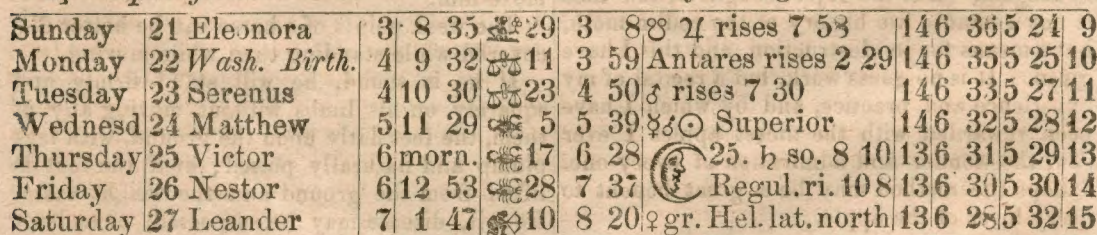 Sunday 21 Eleonora 3 8 35 29 3 8 ☍ ♃ rises 7 58 14 6 36 5 24 9
Monday 22 Wash. Birth. 4 9 32 11 3 59 Antares rises 2 29 14 6 35 5 25 10
Tuesday 23 Serenus 4 10 30 23 4 50 ♂ rises 7 30 14 6 33 5 27 11
Wednesd 24 Matthew 5 11 29 5 5 39 ☿☌☉ Superior 14 6 32 5 28 12
Thursday 25 Victor 6 morn. 17 6 28 25. ♄ so. 8 10 13 6 31 5 29 13
Friday 26 Nestor 6 12 53 28 7 37 Regul. ri. 10 8 13 6 30 5 30 14
Saturday 27 Leander 7 1 47 10 8 20 ♀ gr. Hel. lat. north 13 6 28 5 32 15